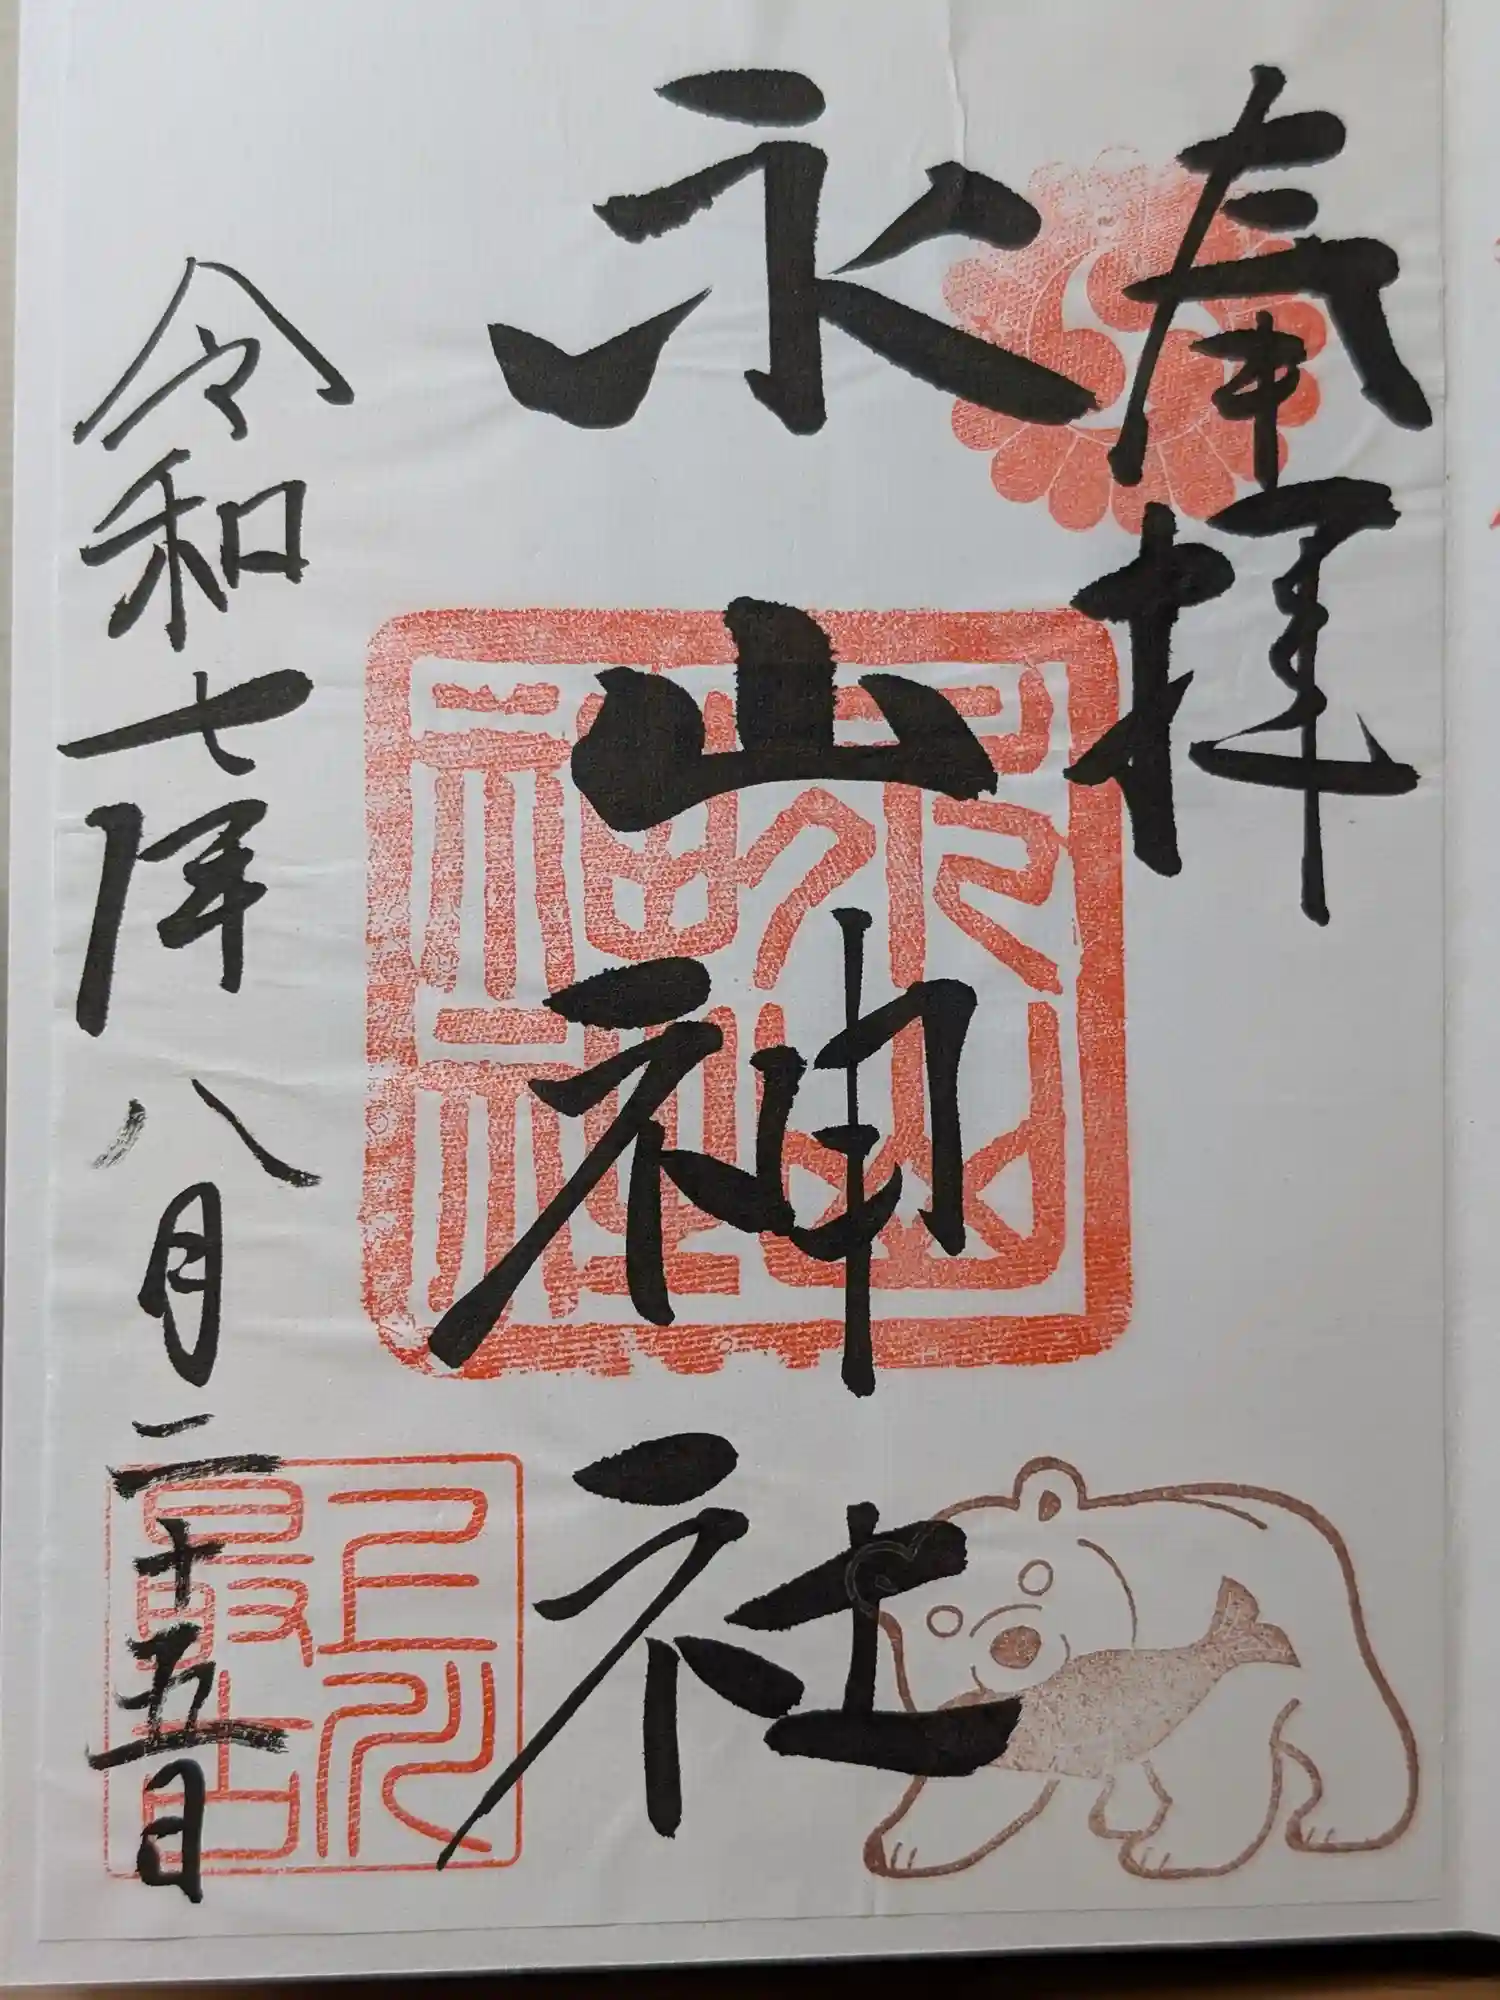 奉拝
永山神社
令和七年八月二十五日
永山神社